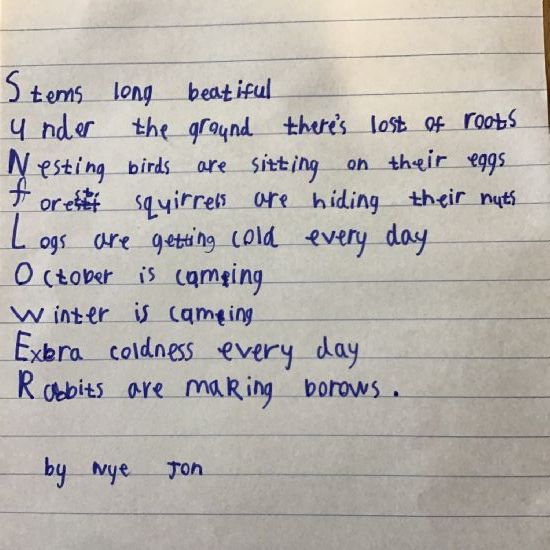 Stems long beatiful
Under the graynd there's lost of roots
Nesting birds are sitting on their eggs
forest squirrels are hiding their nuts
Logs are getting cold every day
October is cameing
Winter is cameing
Exbra coldness every day
Rabbits are making borows.
by Nye Jon